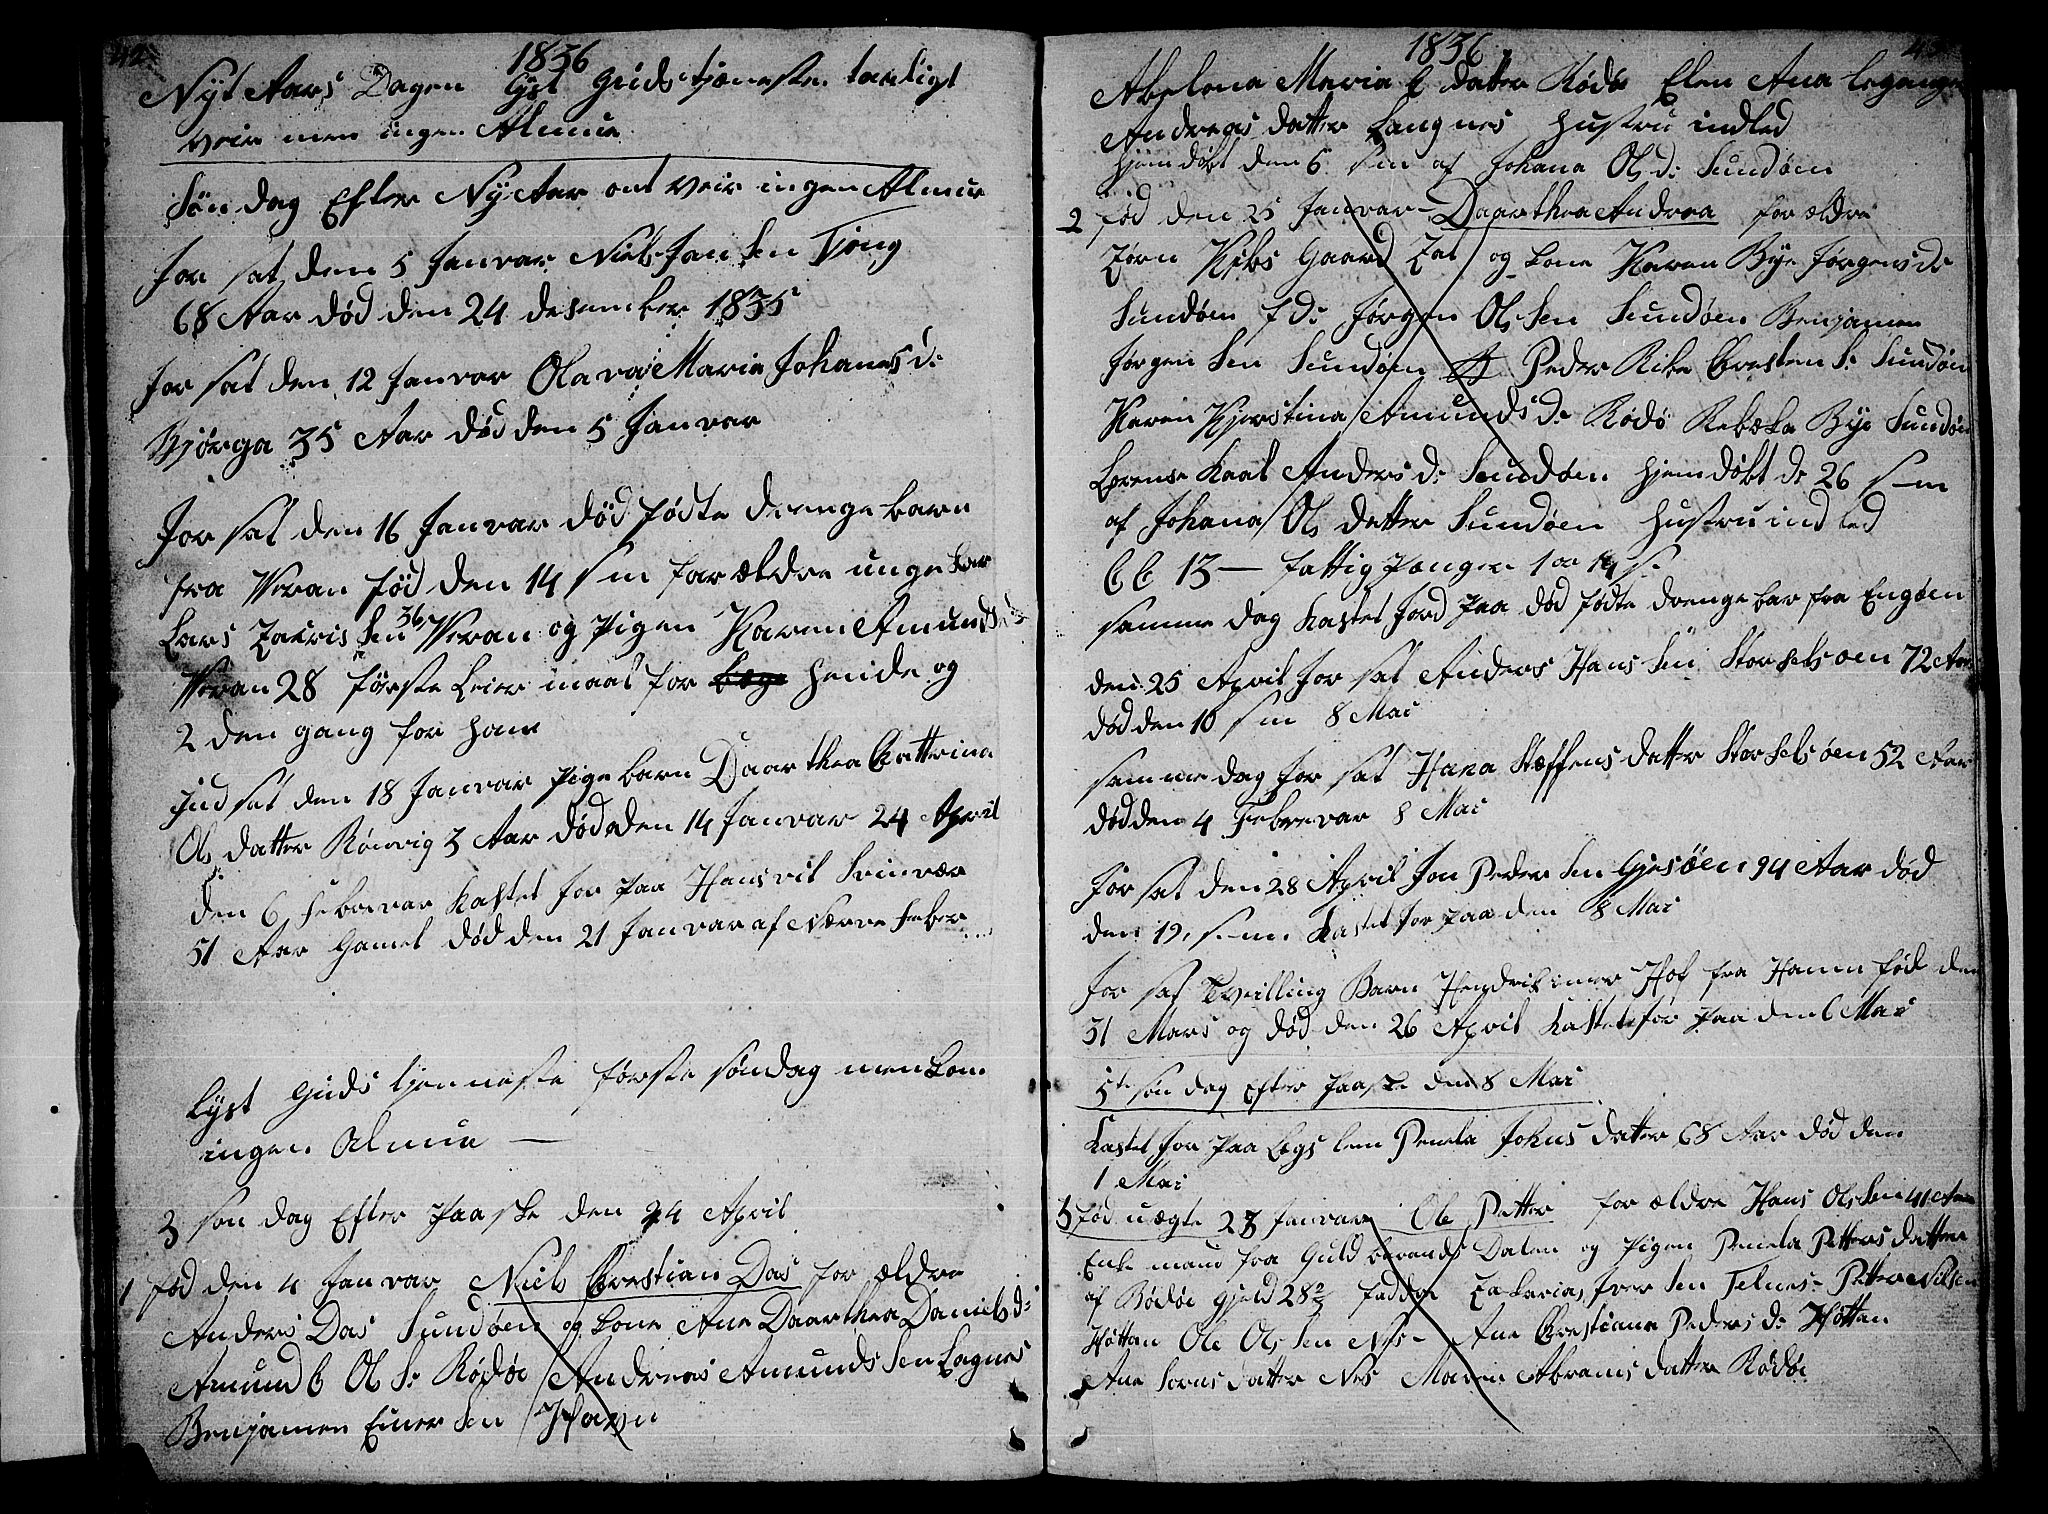 42
1836
Nyt Aars Dagen lyst Guds tjæneste taaligt
veir men ingen Almue
Søn dag Efter Ny Aar ont veir ingen Almue
for sat den 5 Janvar Niels Jan sen Tjong
68 Aar død den 24 desember 1835
for sat den 12 Janvar Olava Maria Johanes d:
Bjørga 35 Aar død den 5 Janvar
for sat den 16 Janvar død fødte drenge barn
fra Væran fød den 14 s m for ældre unge kar
Lars Zakris sen 36 Væran og Pigen Karen Amunds d:
Væran 28 første Leier maal for hende og
2 den gang for ham
jnd sat den 18 Janvar Pige barn Daarthea Cattrina
Ols datter Rønvig 3 Aar død den 14 Janvar 24 April
den 6 Febrevar kastet Jor paa Hans vil Svinvær
51 Aar Gamel død den 21 Janvar af Nærve feber
Lyst Guds tjenneste første søndag men kom
ingen Almue —
3 søn dag Efter Paaske den 24 April
1 fød den 4 Janvar Niels Crestian Das for ældre
Anders Das Sundøen og kone Ane Daarthea Daniels d:
Amund C Ol S: Rødøe Andreas Amunds sen Lagnes
Benjamen Einer sen Havn
1836
43
Abelona Maria C datter Rødø Elen Ana
Andreas datter Langnes Hustru indled
hjem døbt den 6 s m af Johana Ols d: Sundøen
2 fød den 25 Janvar Daarthea Andrea for ældre
Jørn Kibs Gaard Zal og kone Karen Bye Jørgens d:
Sundøen f d: Jørgen Ol sen Sundøen Benjamen
Jørgen sen Sundøen Peder Rike Cresten S: Sundøen
Karen Kjerstina Amunds d: Rødø Rebæka Bye Sundøen
Lorense Kaal Anders d: Sundøen hjem døbt d: 26 s m
af Johana Ols datter Sundøen Hustru ind led
C C 13 — fattig Penger 1 or 14 s:
samme dag kastet Jord paa død fødte drenge bar fra Engøen
den 25 April for sat Anders Hans sen Storselsøen 72 Aar
død den 10 s m 8 Mai
samme dag for sat Hana Stæffens datter Storselsøen 52 Aar
død den 4 Febrevar 8 Mai
for sat den 28 April Jon Peder sen Gjesøen 94 Aar død
den 19, s m: kastet Jor paa den 8 Mai
for sat Tvilling Barn Hendrik Hof fra Hamn fød den
31 Mars og død den 26 April kastet Jor paa den 6 Mai
5te søn dag Efter Paaske den 8 Mai
kastet Jor paa Legs lem Penela Johns datter 68 Aar død den
1 Mai
3 fød uægte 28 Janvar Ole Petter for ældre Hans Ols sen 41 Aar
Enke mand fra Guld brands Dalen og Pigen Penela Petters datter
af Bødøe Gjeld 28 fadder Zakarias Iver sen Telnes - Petter Nilsen
Høttan Ole Ols sen Nes - Ane Crestiane Peders d: Høttan
Ane Sorns datter Nes Maren Abrams datter Rødøe